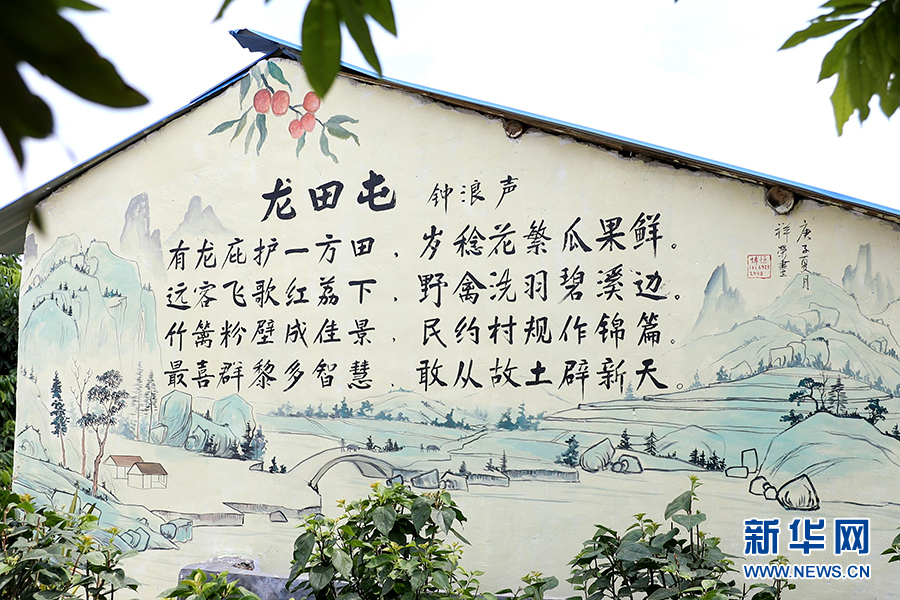 龙田屯 钟浪声
有龙庇护一方田，岁稔花繁瓜果鲜。
远客飞歌红荔下，野禽洗羽碧溪边。
竹篱粉壁成佳景，民约村规作锦篇。
最喜群黎多智慧，敢从故土辟新天。
庚子夏月
新华网
WWW.NEWS.CN